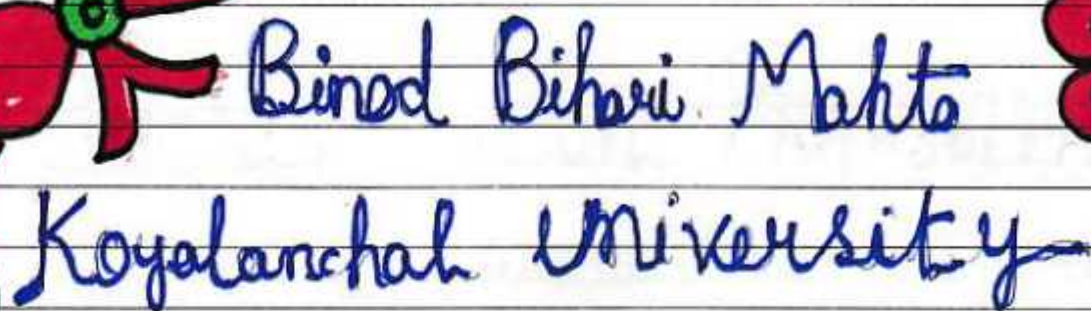 Binod Bihari Mahto
Koyalanchal University